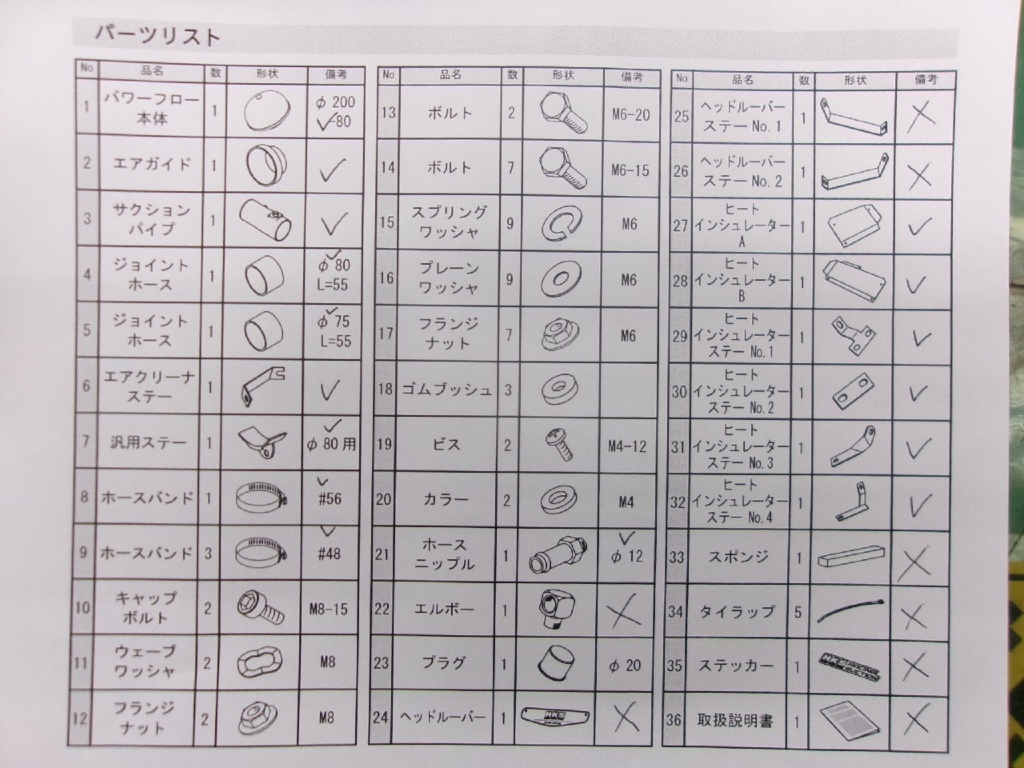 パーツリスト
No 品名 数 形状 備考
1 パワーフロー本体 1 φ200 ✓-80
2 エアガイド 1 ✓
3 サクションパイプ 1 ✓
4 ジョイントホース 1 φ80 L=55 ✓
5 ジョイントホース 1 φ75 L=55 ✓
6 エアクリーナステー 1 ✓
7 汎用ステー 1 φ80用 ✓
8 ホースバンド 1 #56 ✓
9 ホースバンド 3 #48 ✓
10 キャップボルト 2 M8-15
11 ウェーブワッシャ 2 M8
12 フランジナット 2 M8
No 品名 数 形状 備考
13 ボルト 2 M6-20
14 ボルト 7 M6-15
15 スプリングワッシャ 9 M6
16 プレーンワッシャ 9 M6
17 フランジナット 7 M6
18 ゴムブッシュ 3
19 ビス 2 M4-12
20 カラー 2 M4
21 ホースニップル 1 φ12 ✓
22 エルボー 1 ×
23 プラグ 1 φ20
24 ヘッドルーバー 1 HKS ×
No 品名 数 形状 備考
25 ヘッドルーバーステーNo.1 1 ×
26 ヘッドルーバーステーNo.2 1 ×
27 ヒートインシュレーターA 1 ✓
28 ヒートインシュレーターB 1 ✓
29 ヒートインシュレーターステーNo.1 1 ✓
30 ヒートインシュレーターステーNo.2 1 ✓
31 ヒートインシュレーターステーNo.3 1 ✓
32 ヒートインシュレーターステーNo.4 1 ✓
33 スポンジ 1 ×
34 タイラップ 5 ×
35 ステッカー 1 ×
36 取扱説明書 1 ×